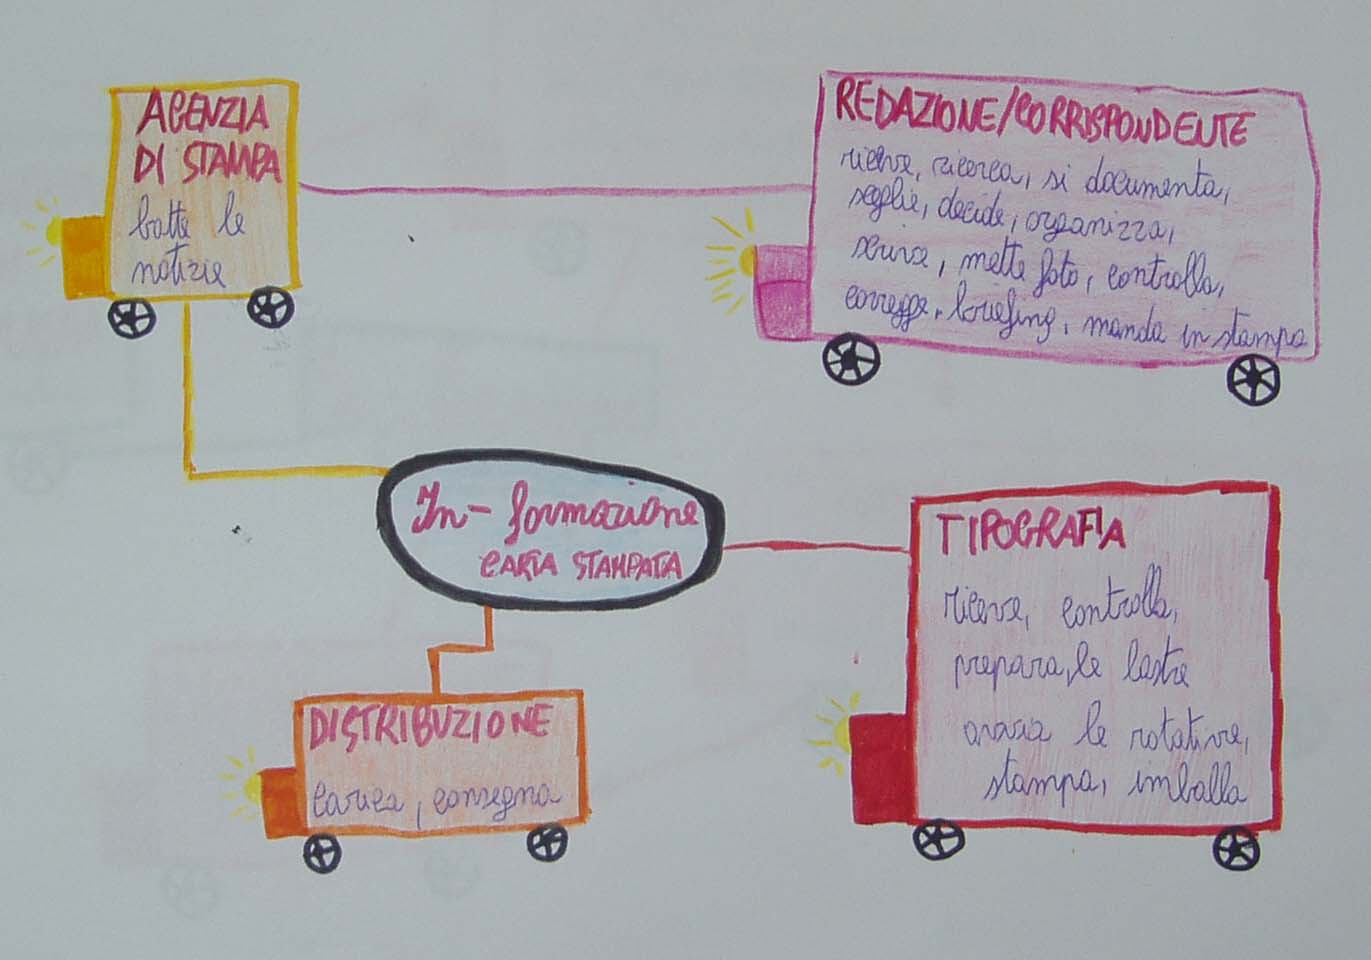 AGENZIA
DI STAMPA
batte le
notizie
REDAZIONE/CORRISPONDENTE
riceve, ricerca, si documenta,
sceglie, decide, organizza,
scrive, mette foto, controlla,
corregge, briefing, manda in stampa
In-formazione
CARTA STAMPATA
TIPOGRAFIA
riceve, controlla,
prepara, le lastre
avvia le rotative,
stampa, imballa
DISTRIBUZIONE
carica, consegna